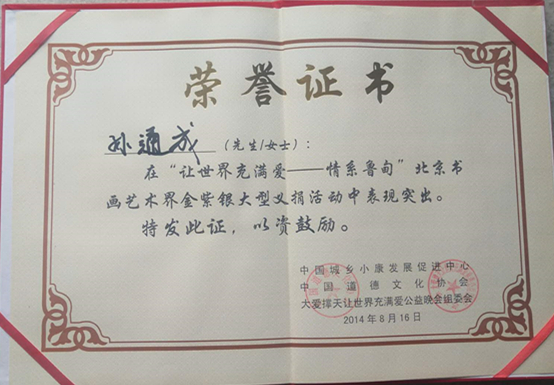 荣誉证书
孙通成（先生/女士）：
在“让世界充满爱——情系鲁甸”北京书
画艺术界金紫银大型义捐活动中表现突出。
特发此证，以资鼓励。
中国城乡小康发展促进中心
中国道德文化协会
大爱撑天让世界充满爱公益晚会组委会
2014年8月16日